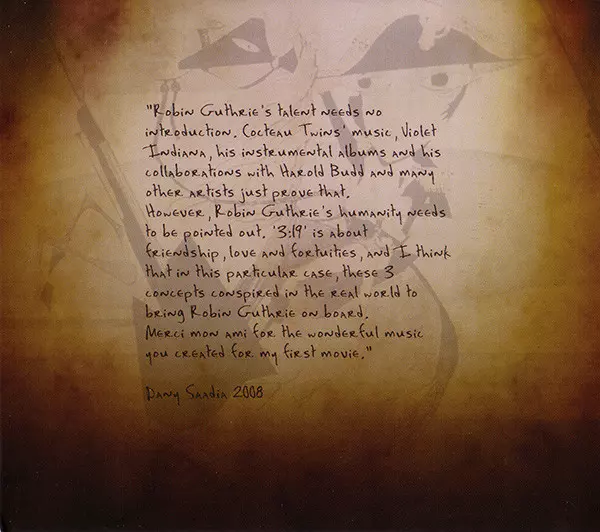 "Robin Guthrie's talent needs no
introduction. Cocteau Twins' music, Violet
Indiana, his instrumental albums and his
collaborations with Harold Budd and many
other artists just prove that.
However, Robin Guthrie's humanity needs
to be pointed out. '3:19' is about
friendship, love and fortuities, and I think
that in this particular case, these 3
concepts conspired in the real world to
bring Robin Guthrie on board.
Merci mon ami for the wonderful music
you created for my first movie."
Dany Saadia 2008